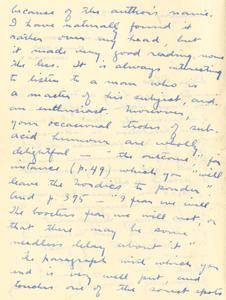 because of the author's name.
I have naturally found it
rather over my head, but
it made very good reading none
the less. It is always interesting
to listen to a man who is
a master of his subject, and
an enthusiast. Moreover,
your occasional strokes of sub-
acid humour are wholly
delightful — "the outcome" for
instance (p. 49) which you "will
leave the Nordics to ponder"
and p. 395 — "I fear we will
the boosters fear we will not, or
that there may be some
needless delay about it"
The paragraph with which you
end is very well put, and
touches one of the sorest spots